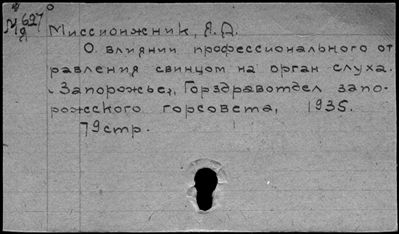 М 627
Я
Миссионжник, Я.Д.
О влиянии профессионального от
равления свинцом на орган слуха.
"Запорожье", Горздравотдел запо-
рожского горсовета, 1935.
79стр.